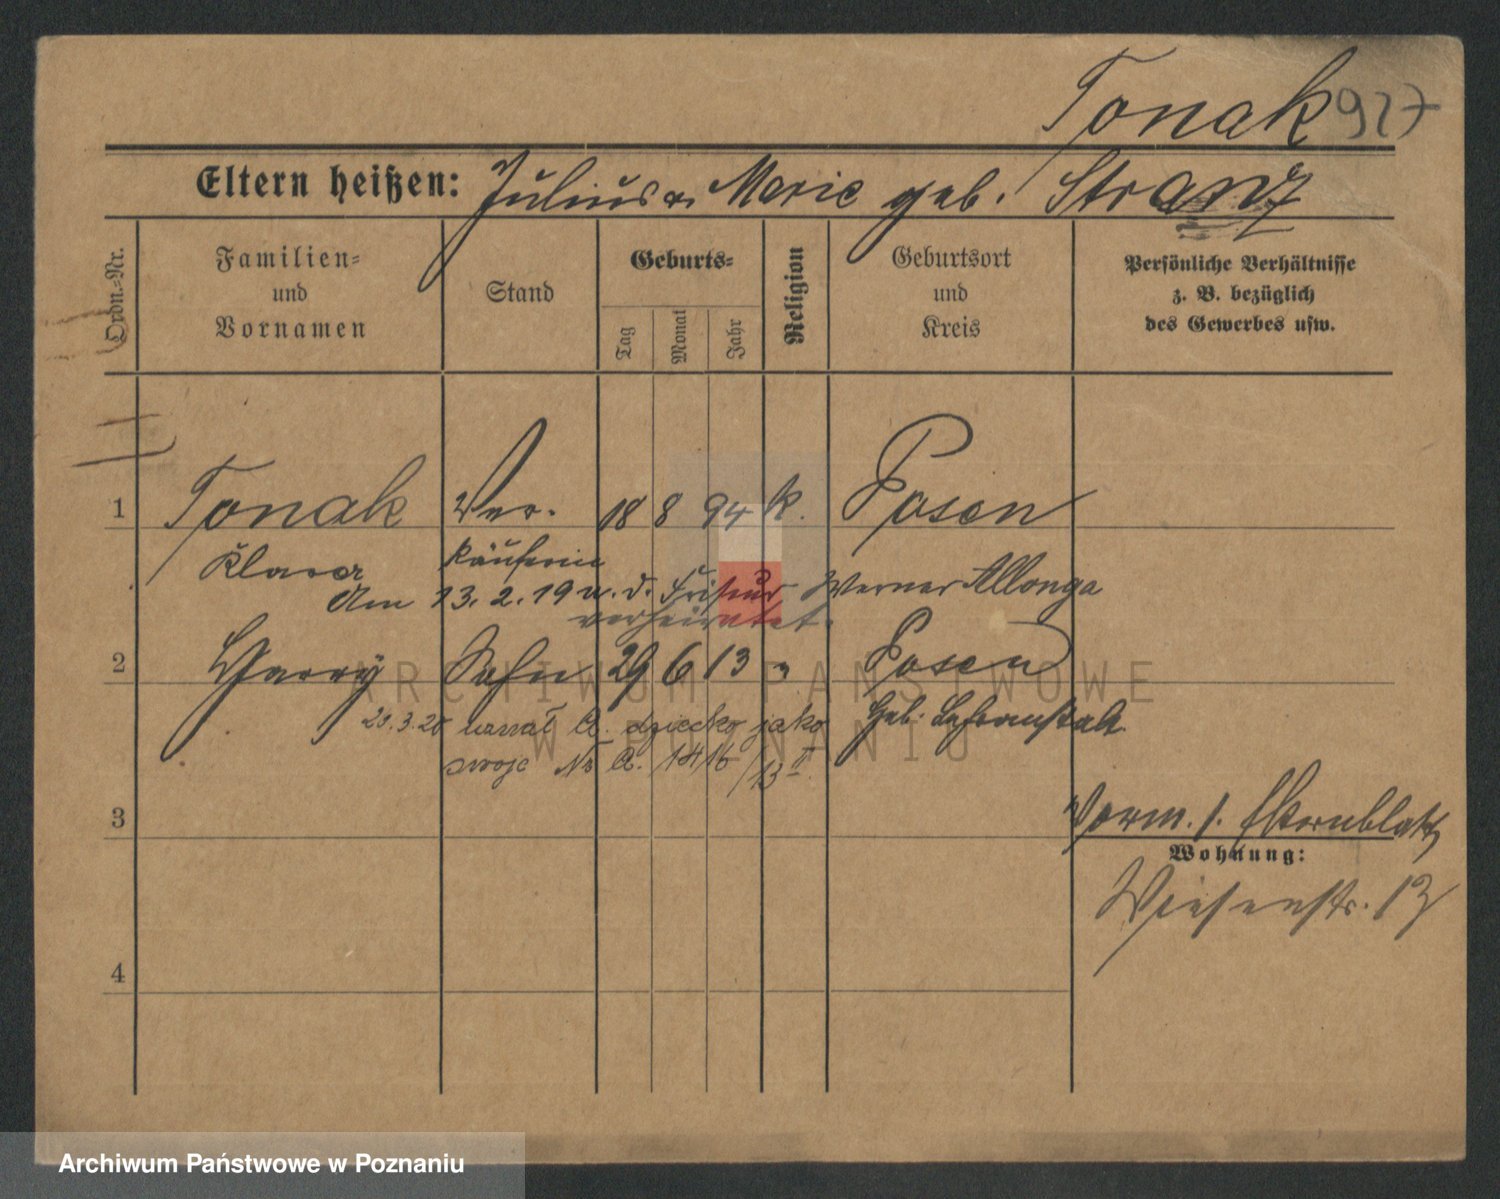 Tonak 927
Eltern heißen: Julius u. Marie geb. Stranz
Ordn.-Nr.
Familien-
und
Vornamen
Stand
Geburts-
Tag
Monat
Jahr
Religion
Geburtsort
und
Kreis
Persönliche Verhältnisse
z. B. bezüglich
des Gewerbes usw.
1 Tonak Ver- 18 8 94 k. Posen
Klara käuferin
Am 13.2.19 m. d. Friseur Werner Allonga
verheiratet.
2 Harry Sohn 29 6 13 " Posen
23.3.20 uznał A. dziecko jako Geb. Lehranstalt
swoje No A. 1416/13 II
3
Vorm. s. Aktenblatt
Wohnung:
Wiesenstr. 13
4
ARCHIWUM PAŃSTWOWE
W POZNANIU
Archiwum Państwowe w Poznaniu